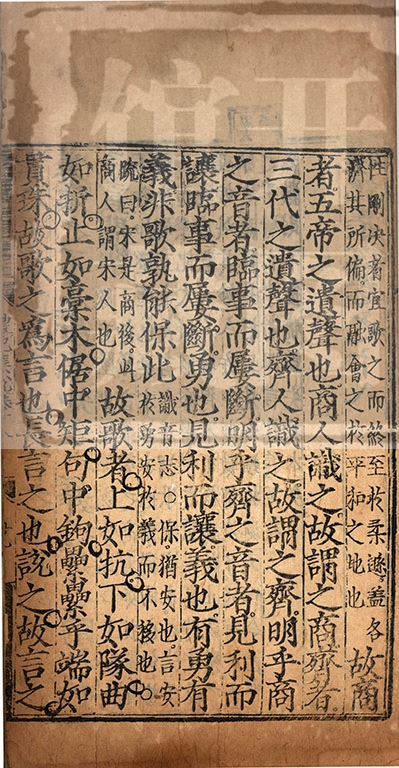 性剛決者宜歌之而終至於柔遜盖各
濟其所偏而融會之於平和之地也
故商
者五帝之遺聲也商人識之故謂之商齊者
三代之遺聲也齊人識之故謂之齊明乎商
之音者臨事而屢斷明乎齊之音者見利而
讓臨事而屢斷勇也見利而讓義也有勇有
義非歌孰能保此
識音志○保猶安也言安
於勇安於義而不移也○
疏曰宋是商後此
商人謂宋人也
故歌者上如抗下如隊曲
如折止如槀木倨中矩句中鉤纍纍乎端如
貫珠故歌之爲言也長言之也說之故言之